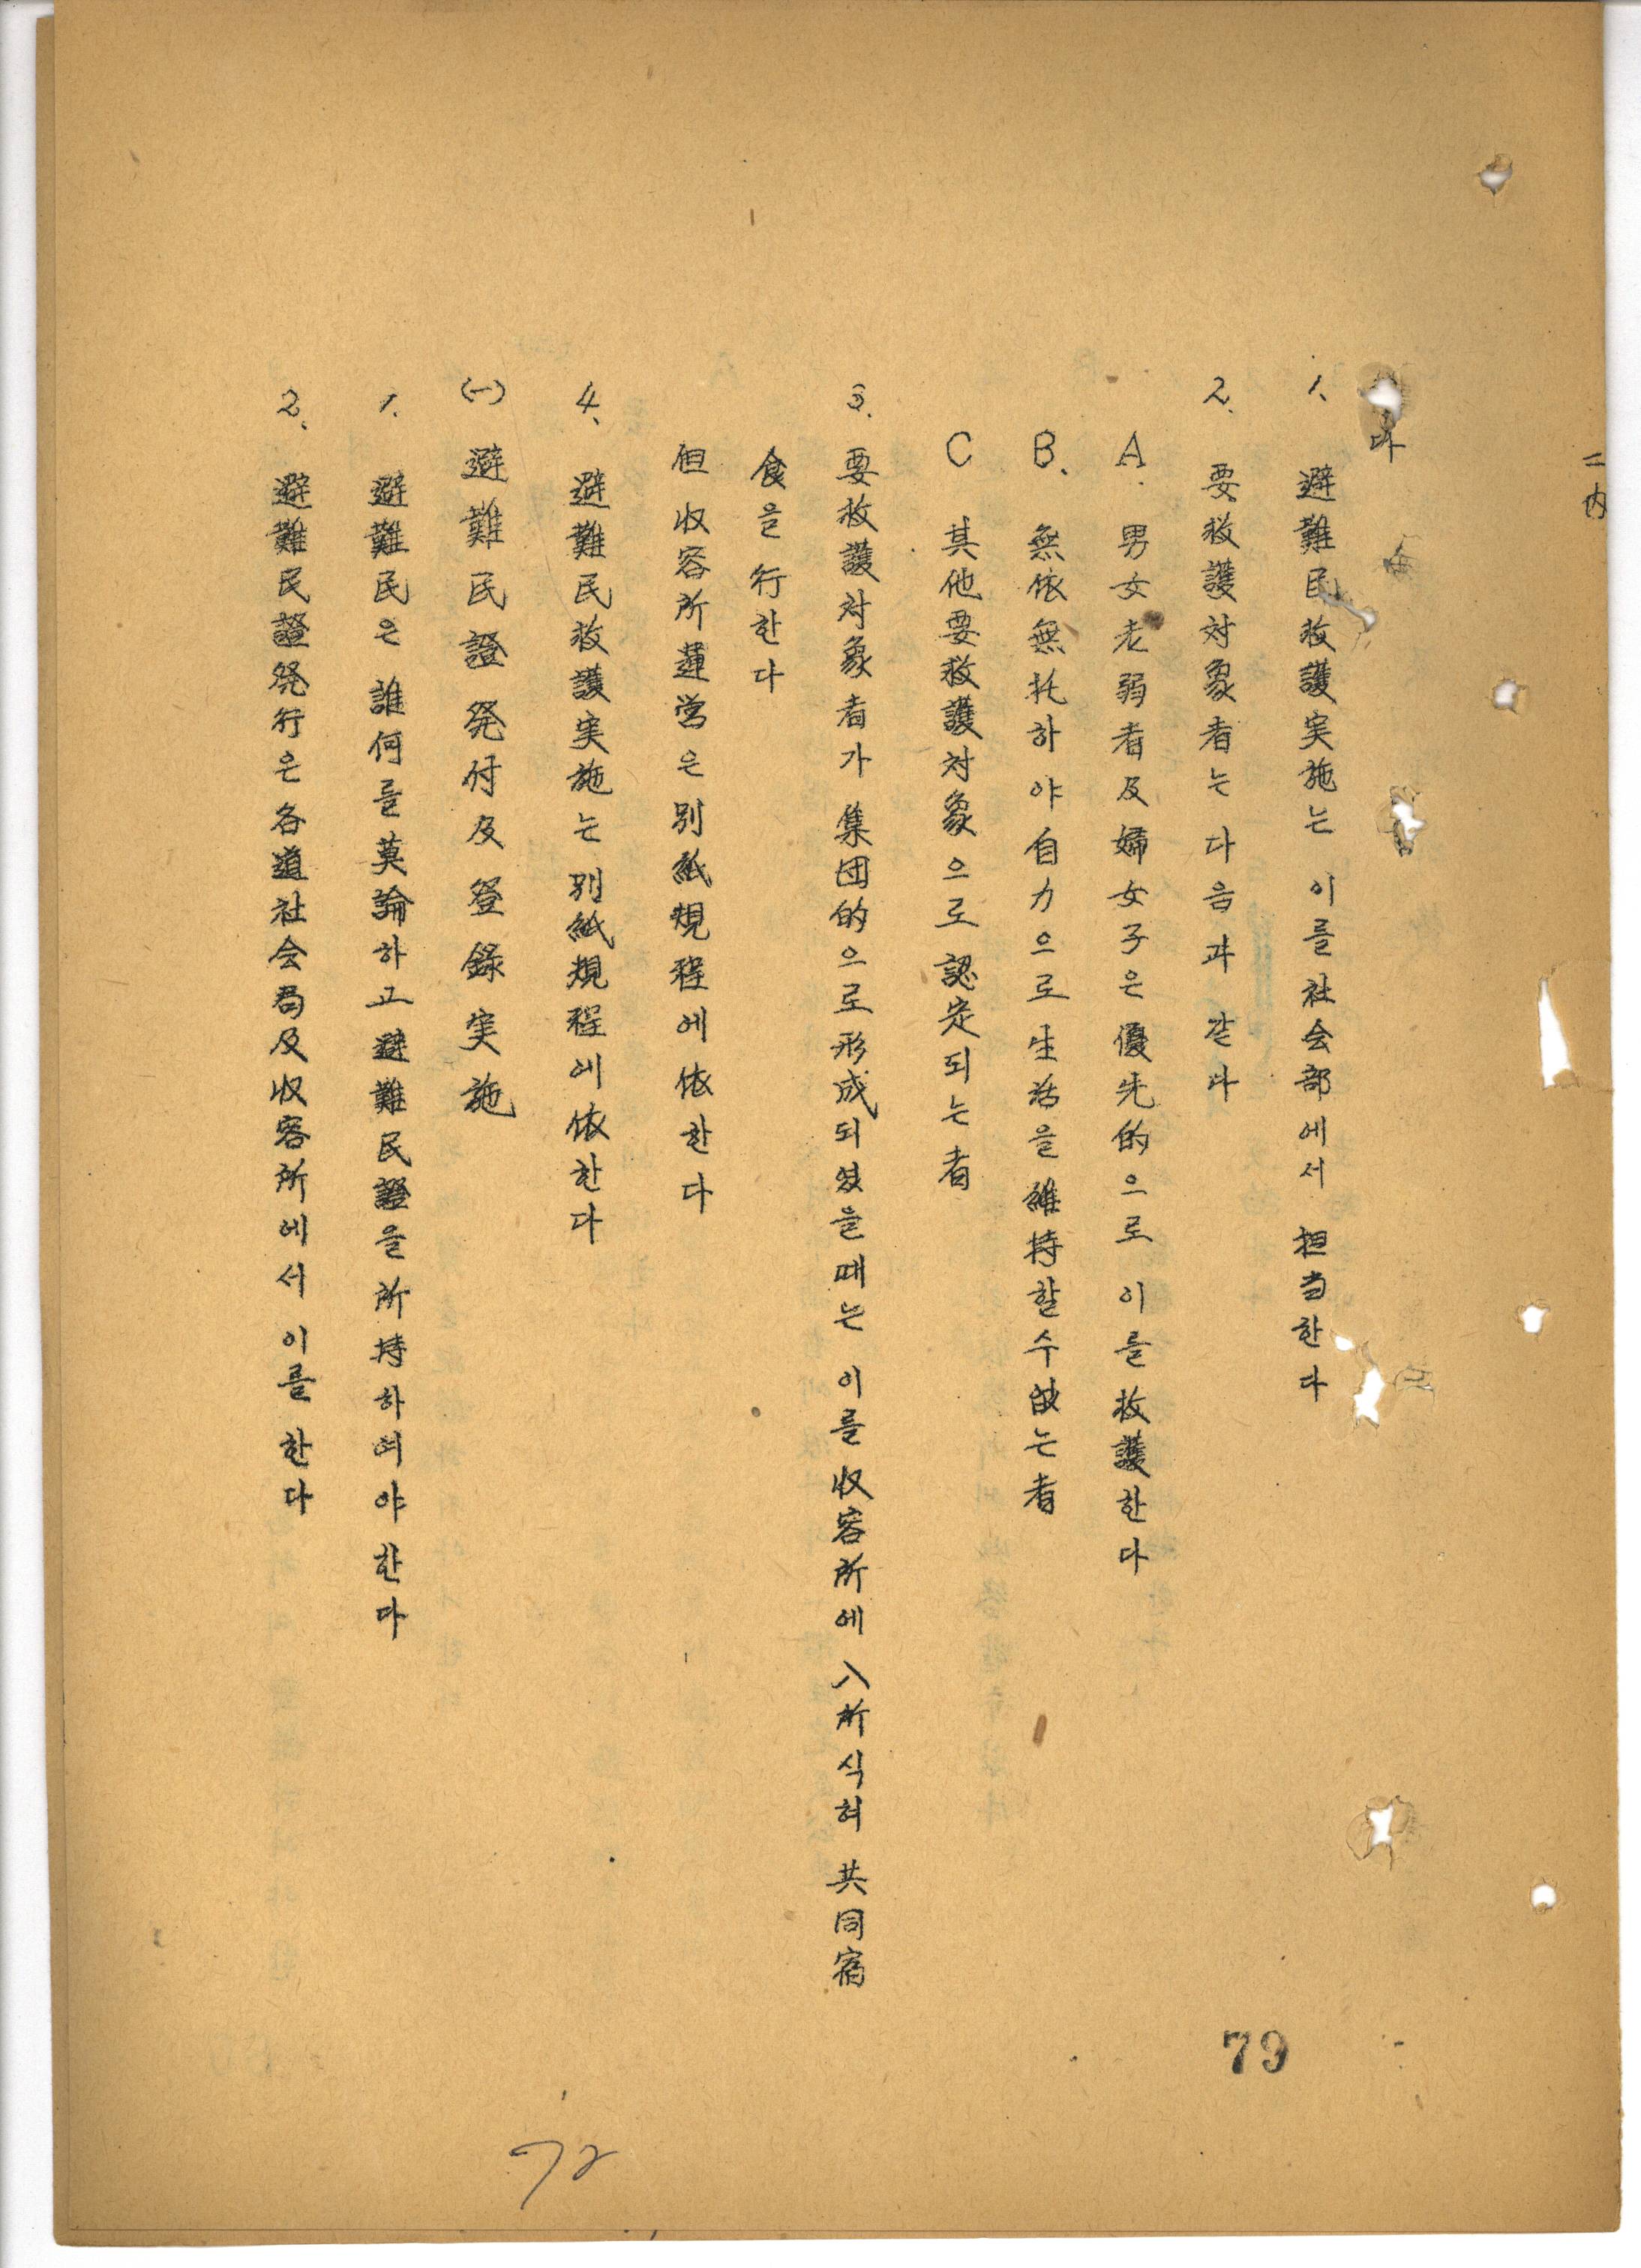 二内
다
1、避難民救護実施는 이를 社会部에서 担当한다
2、要救護対象者는 다음과 같다
A. 男女老弱者及婦女子은 優先的으로 이를 救護한다
B、無依無托하야 自力으로 生活을 維持할수 없는者
C 其他要救護対象으로 認定되는者
3、要救護対象者가 集団的으로 形成되였을때는 이를 収容所에 入所식혀 共同宿
食을 行한다
但 収容所運営은 別紙規程에 依한다
4、避難民救護実施는 別紙規程에 依한다
(一) 避難民證発付及登録実施
1、避難民은 誰何를 莫論하고 避難民證을 所持하여야 한다
2、避難民證発行은 各道社会局及収容所에서 이를 한다
79
72